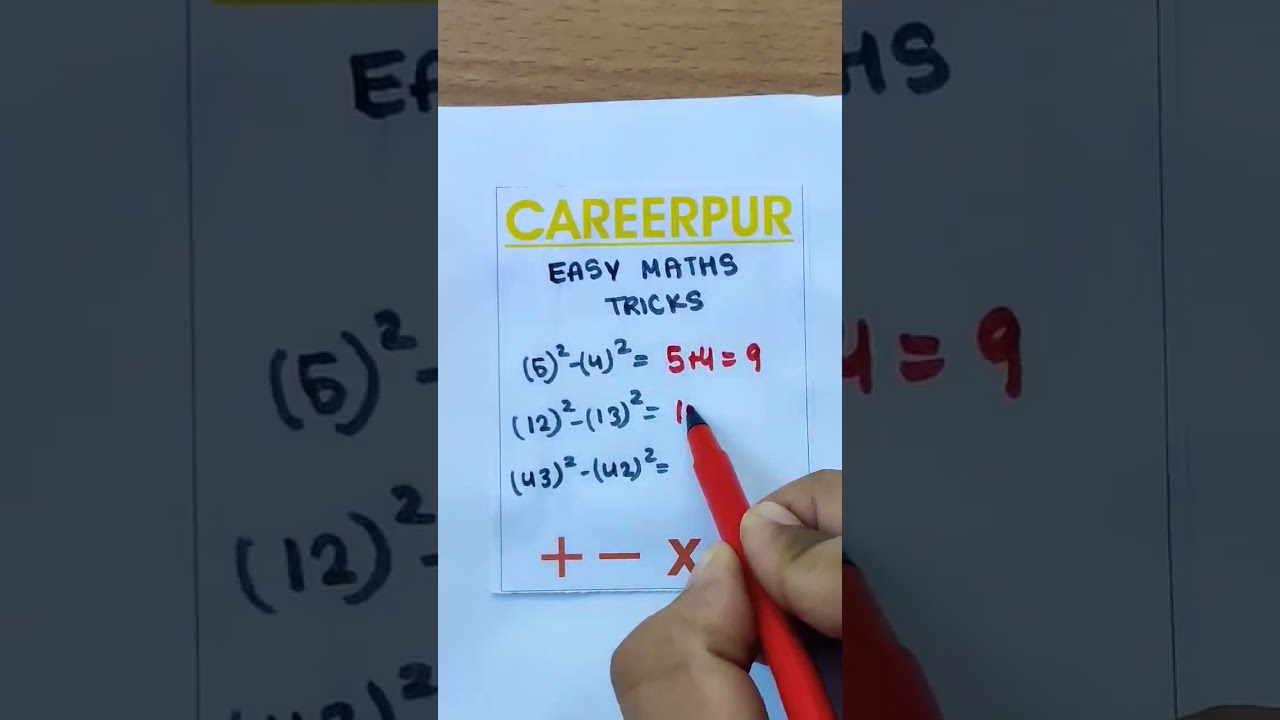 CAREERPUR
EASY MATHS
TRICKS
(5)²-(4)²= 5+4=9
(12)²-(13)²= 1
(43)²-(42)²=
+ - x